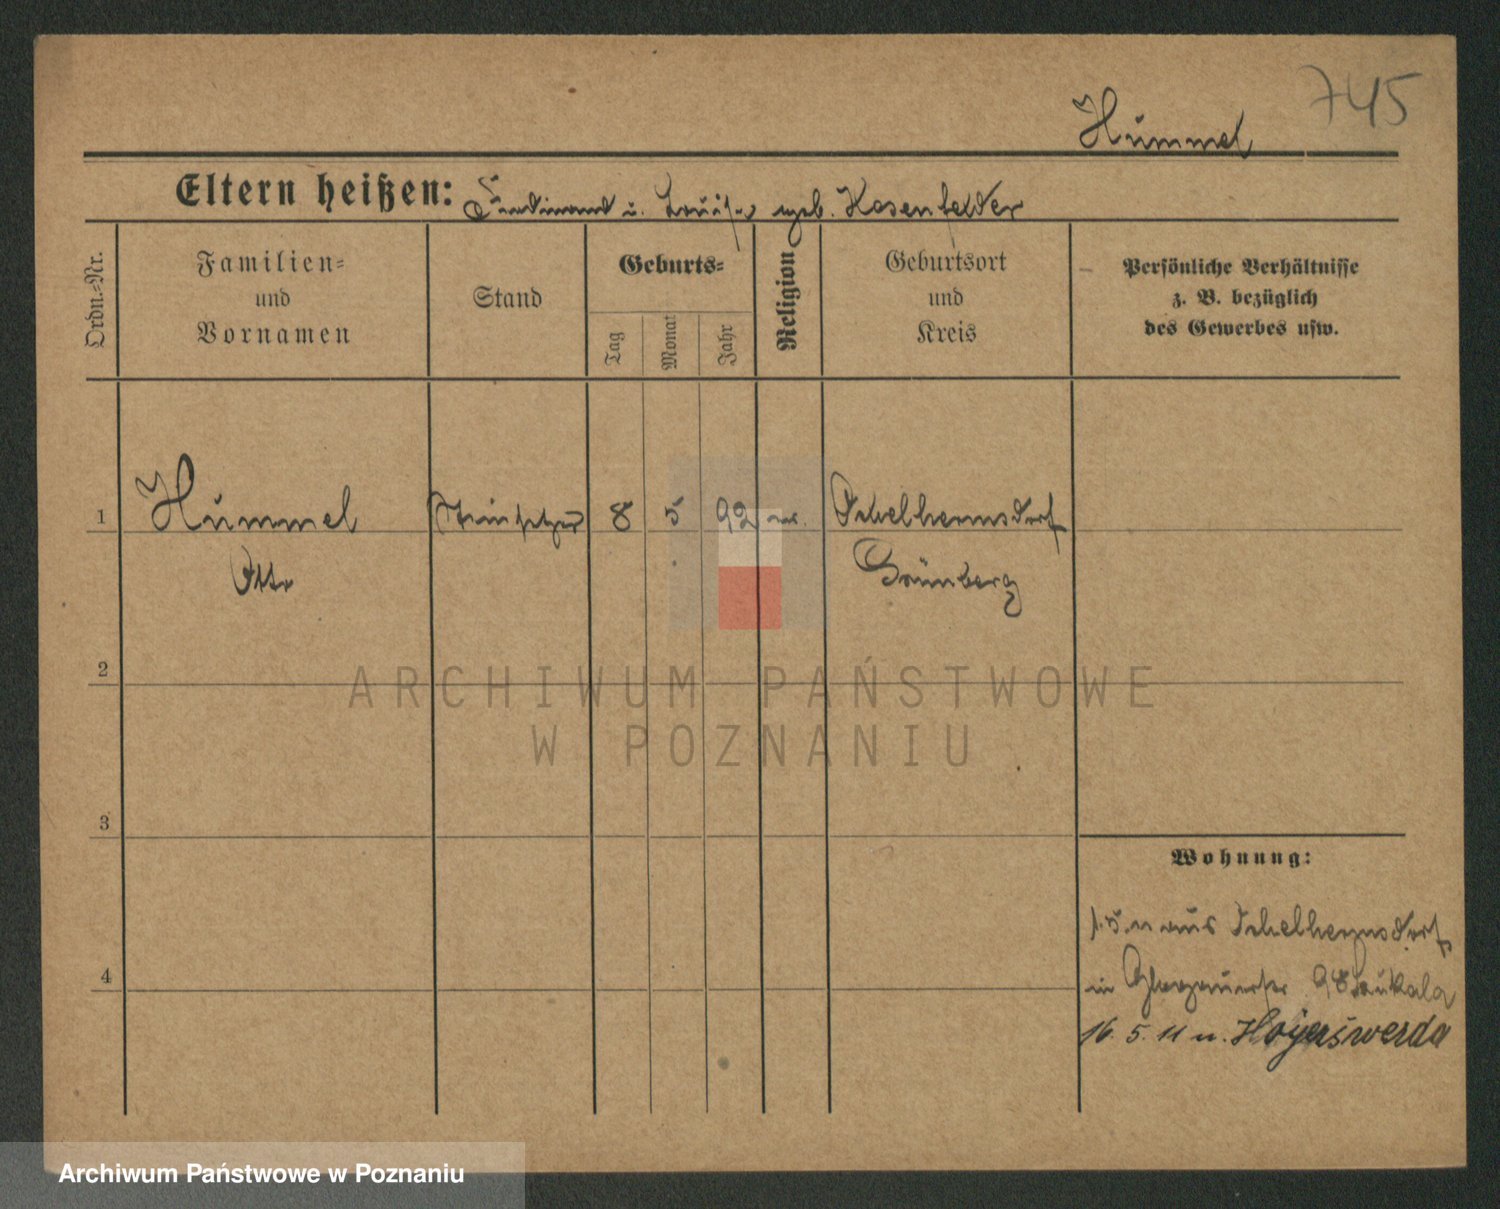 745
Hummel
Eltern heißen: Ferdinand u. Louise geb. Hasenfelder
Ordn.-Nr.
Familien-
und
Vornamen
Stand
Geburts-
Tag
Monat
Jahr
Religion
Geburtsort
und
Kreis
Persönliche Verhältnisse
z. B. bezüglich
des Gewerbes usw.
1 Hummel Steinsetzer 8 5 92 ev. Schelhermsdorf
Otto Grünberg
2
3
4
Wohnung:
1.5.11 aus Schelhermsdorf
in Glogauerstr 98
16. 5. 11 n. Hoyerswerda
ARCHIWUM PAŃSTWOWE
W POZNANIU
Archiwum Państwowe w Poznaniu